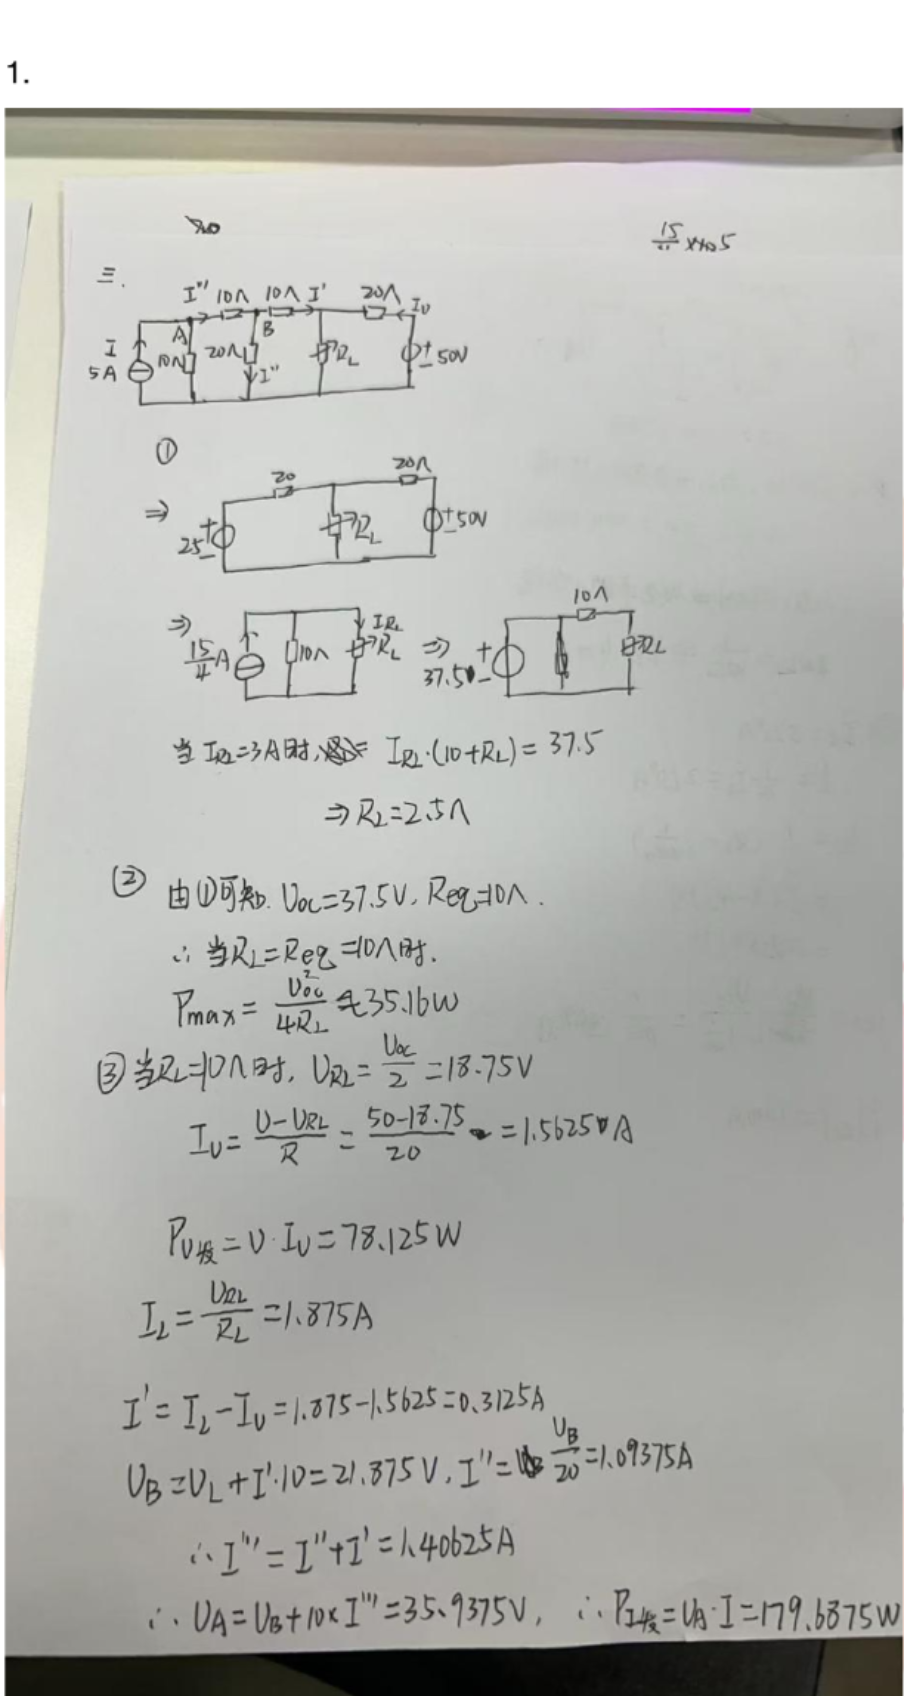 1.
20
15 5
三.
I''' 10Λ 10Λ I' 20Λ IU
A B
I 5A 10Λ 20Λ I'' RL + 50V -
①
⇒ + 25 - 20 RL 20Λ + 50V -
⇒ 15/4 A 10Λ IRL RL ⇒ + 37.5 - 10Λ RL
当 IRL=3A时, IRL·(10+RL)=37.5
⇒ RL=2.5Λ
② 由①可知. Uoc=37.5V, Req=10Λ.
∴ 当RL=Req=10Λ时.
Pmax = Uoc²/4RL = 35.16W
③ 当RL=10Λ时, URL = Uoc/2 = 18.75V
IU = U-URL/R = 50-18.75/20 = 1.5625A
PU发 = U·IU = 78.125W
IL = URL/RL = 1.875A
I' = IL - IU = 1.875-1.5625 = 0.3125A
UB = UL + I'·10 = 21.875V, I'' = UB/20 = 1.09375A
∴ I''' = I''+I' = 1.40625A
∴ UA = UB+10×I''' = 35.9375V, ∴ PI发 = UA·I = 179.6875W